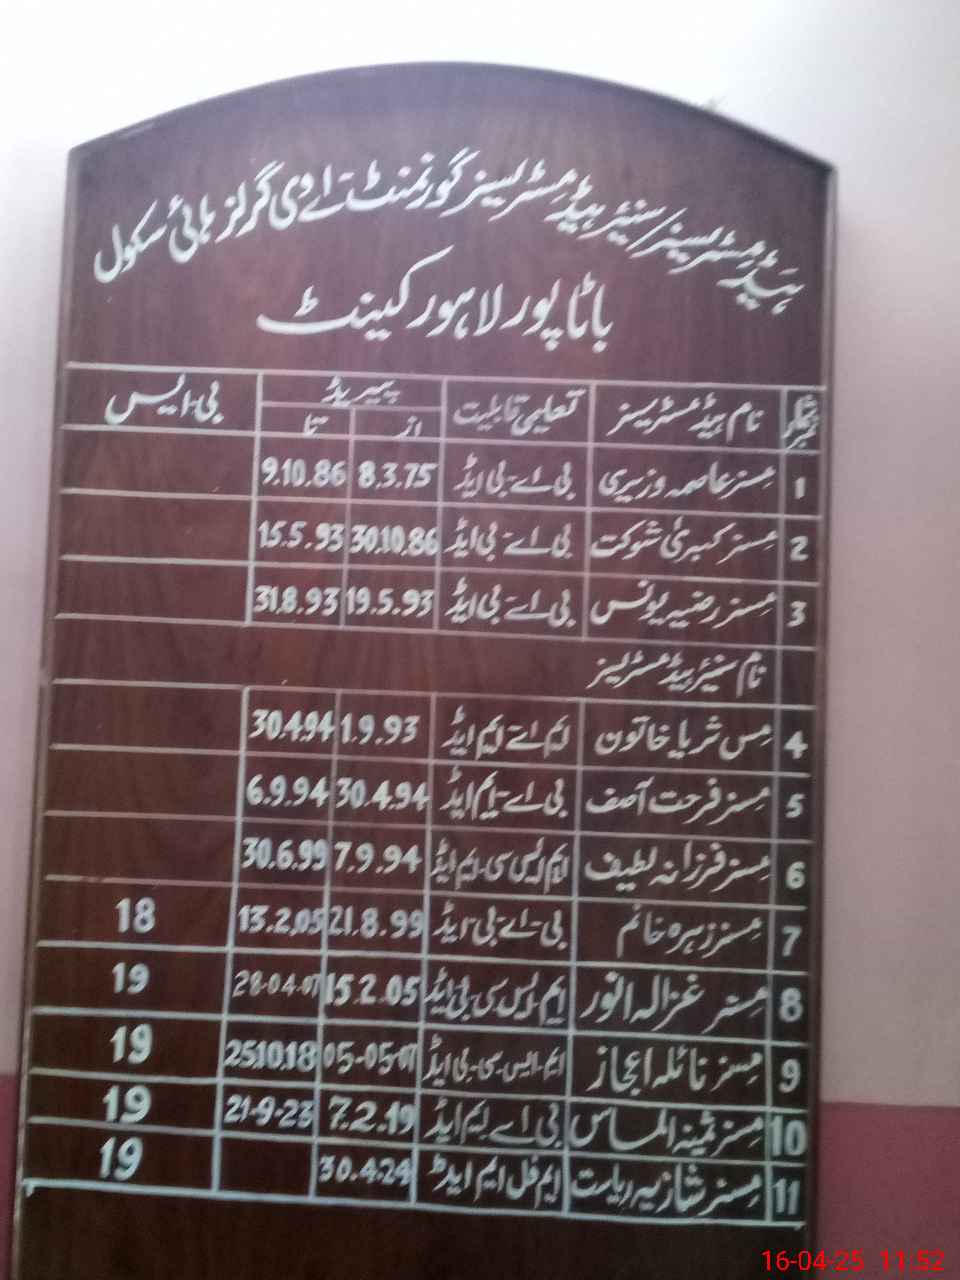 ہیڈ مسٹریسز/سنیئر ہیڈ مسٹریسز گورنمنٹ اے ڈی گرلز ہائی سکول
باٹا پور لاہور کینٹ
نمبر شمار نام ہیڈ مسٹریسز تعلیمی قابلیت پیریڈ بی-ایس
از تا
1 مسز عاصمہ وزیری بی اے-بی ایڈ 8.3.75 9.10.86
2 مسز کبریٰ شوکت بی اے-بی ایڈ 30.10.86 15.5.93
3 مسز رضیہ یونس بی اے-بی ایڈ 19.5.93 31.8.93
نام سنیئر ہیڈ مسٹریسز
4 مس ثریا خاتون ایم اے ایم ایڈ 1.9.93 30.4.94
5 مسز فرحت آصف بی اے-ایم ایڈ 30.4.94 6.9.94
6 مسز فرزانہ لطیف ایم ایس سی-ایم ایڈ 7.9.94 30.6.99
7 مسز زہرہ خانم بی-اے-بی-ایڈ 21.8.99 13.2.05 18
8 مسز غزالہ انور ایم ایس سی-بی ایڈ 15.2.05 28-04-07 19
9 مسز نائلہ اعجاز ایم-ایس-سی-بی ایڈ 05-05-07 25.10.18 19
10 مسز ثمینہ الماس بی اے ایم ایڈ 7.2.19 21-9-23 19
11 مسز شازیہ ریاست ایم فل ایم ایڈ 30.4.24 19
16-04-25 11:52